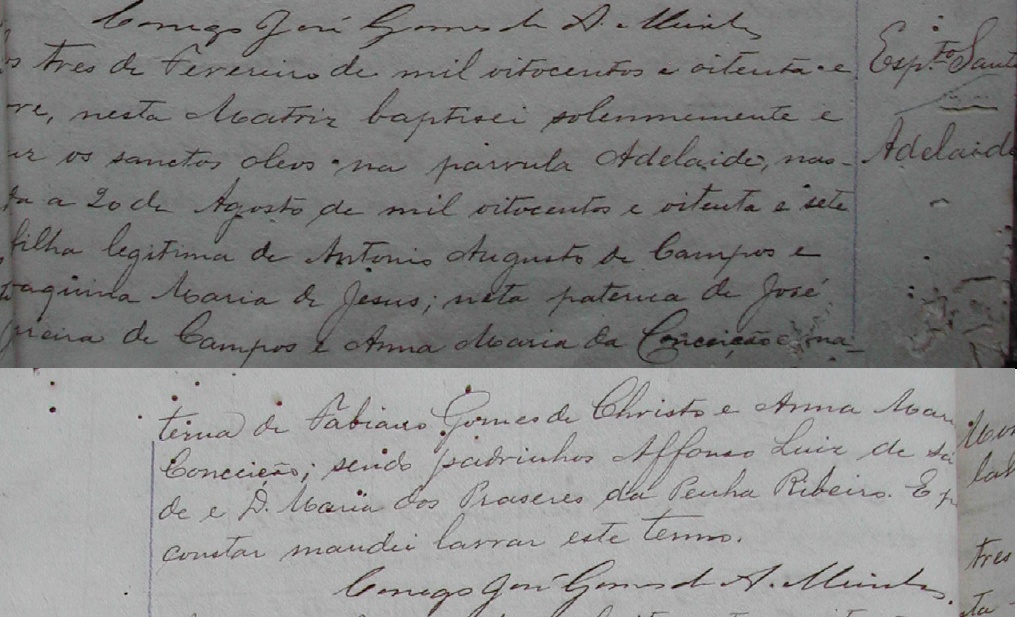 Conego José Gomes de A. Meirelles
os tres de Fevereiro de mil oitocentos e oitenta e
ve, nesta Matriz baptisei solemnemente e
uz os sanctos oleos na parvula Adelaide, nas-
da a 20 de Agosto de mil oitocentos e oitenta e sete
filha legitima de Antonio Augusto de Campos e
oaquina Maria de Jesus; neta paterna de José
reira de Campos e Anna Maria da Conceição e ma-
Esp.to Sant
Adelaide
terna de Fabiano Gomes de Christo e Anna Mar
Conceição; sendo padrinhos Affonso Luiz de
de e D. Maria dos Praseres da Penha Ribeiro. E p
constar mandei lavrar este termo.
Conego José Gomes de A. Meirelles.
tres
ta